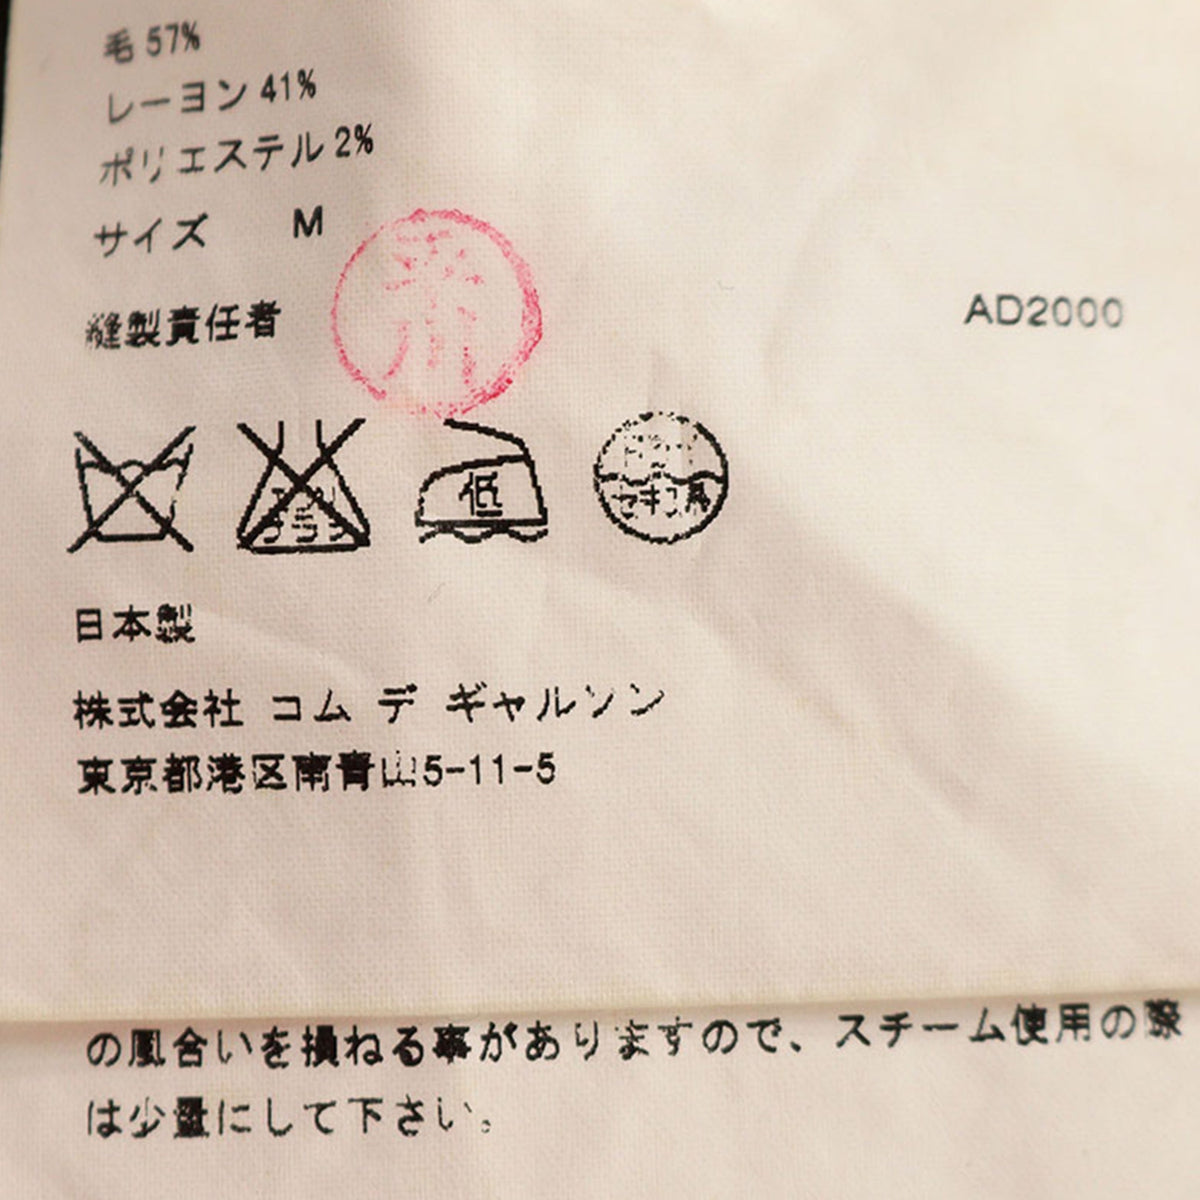 毛 57%
レーヨン 41%
ポリエステル 2%
サイズ M
縫製責任者
AD2000
低
セキユ系
日本製
株式会社 コム デ ギャルソン
東京都港区南青山5-11-5
の風合いを損ねる事がありますので、スチーム使用の際
は少量にして下さい。